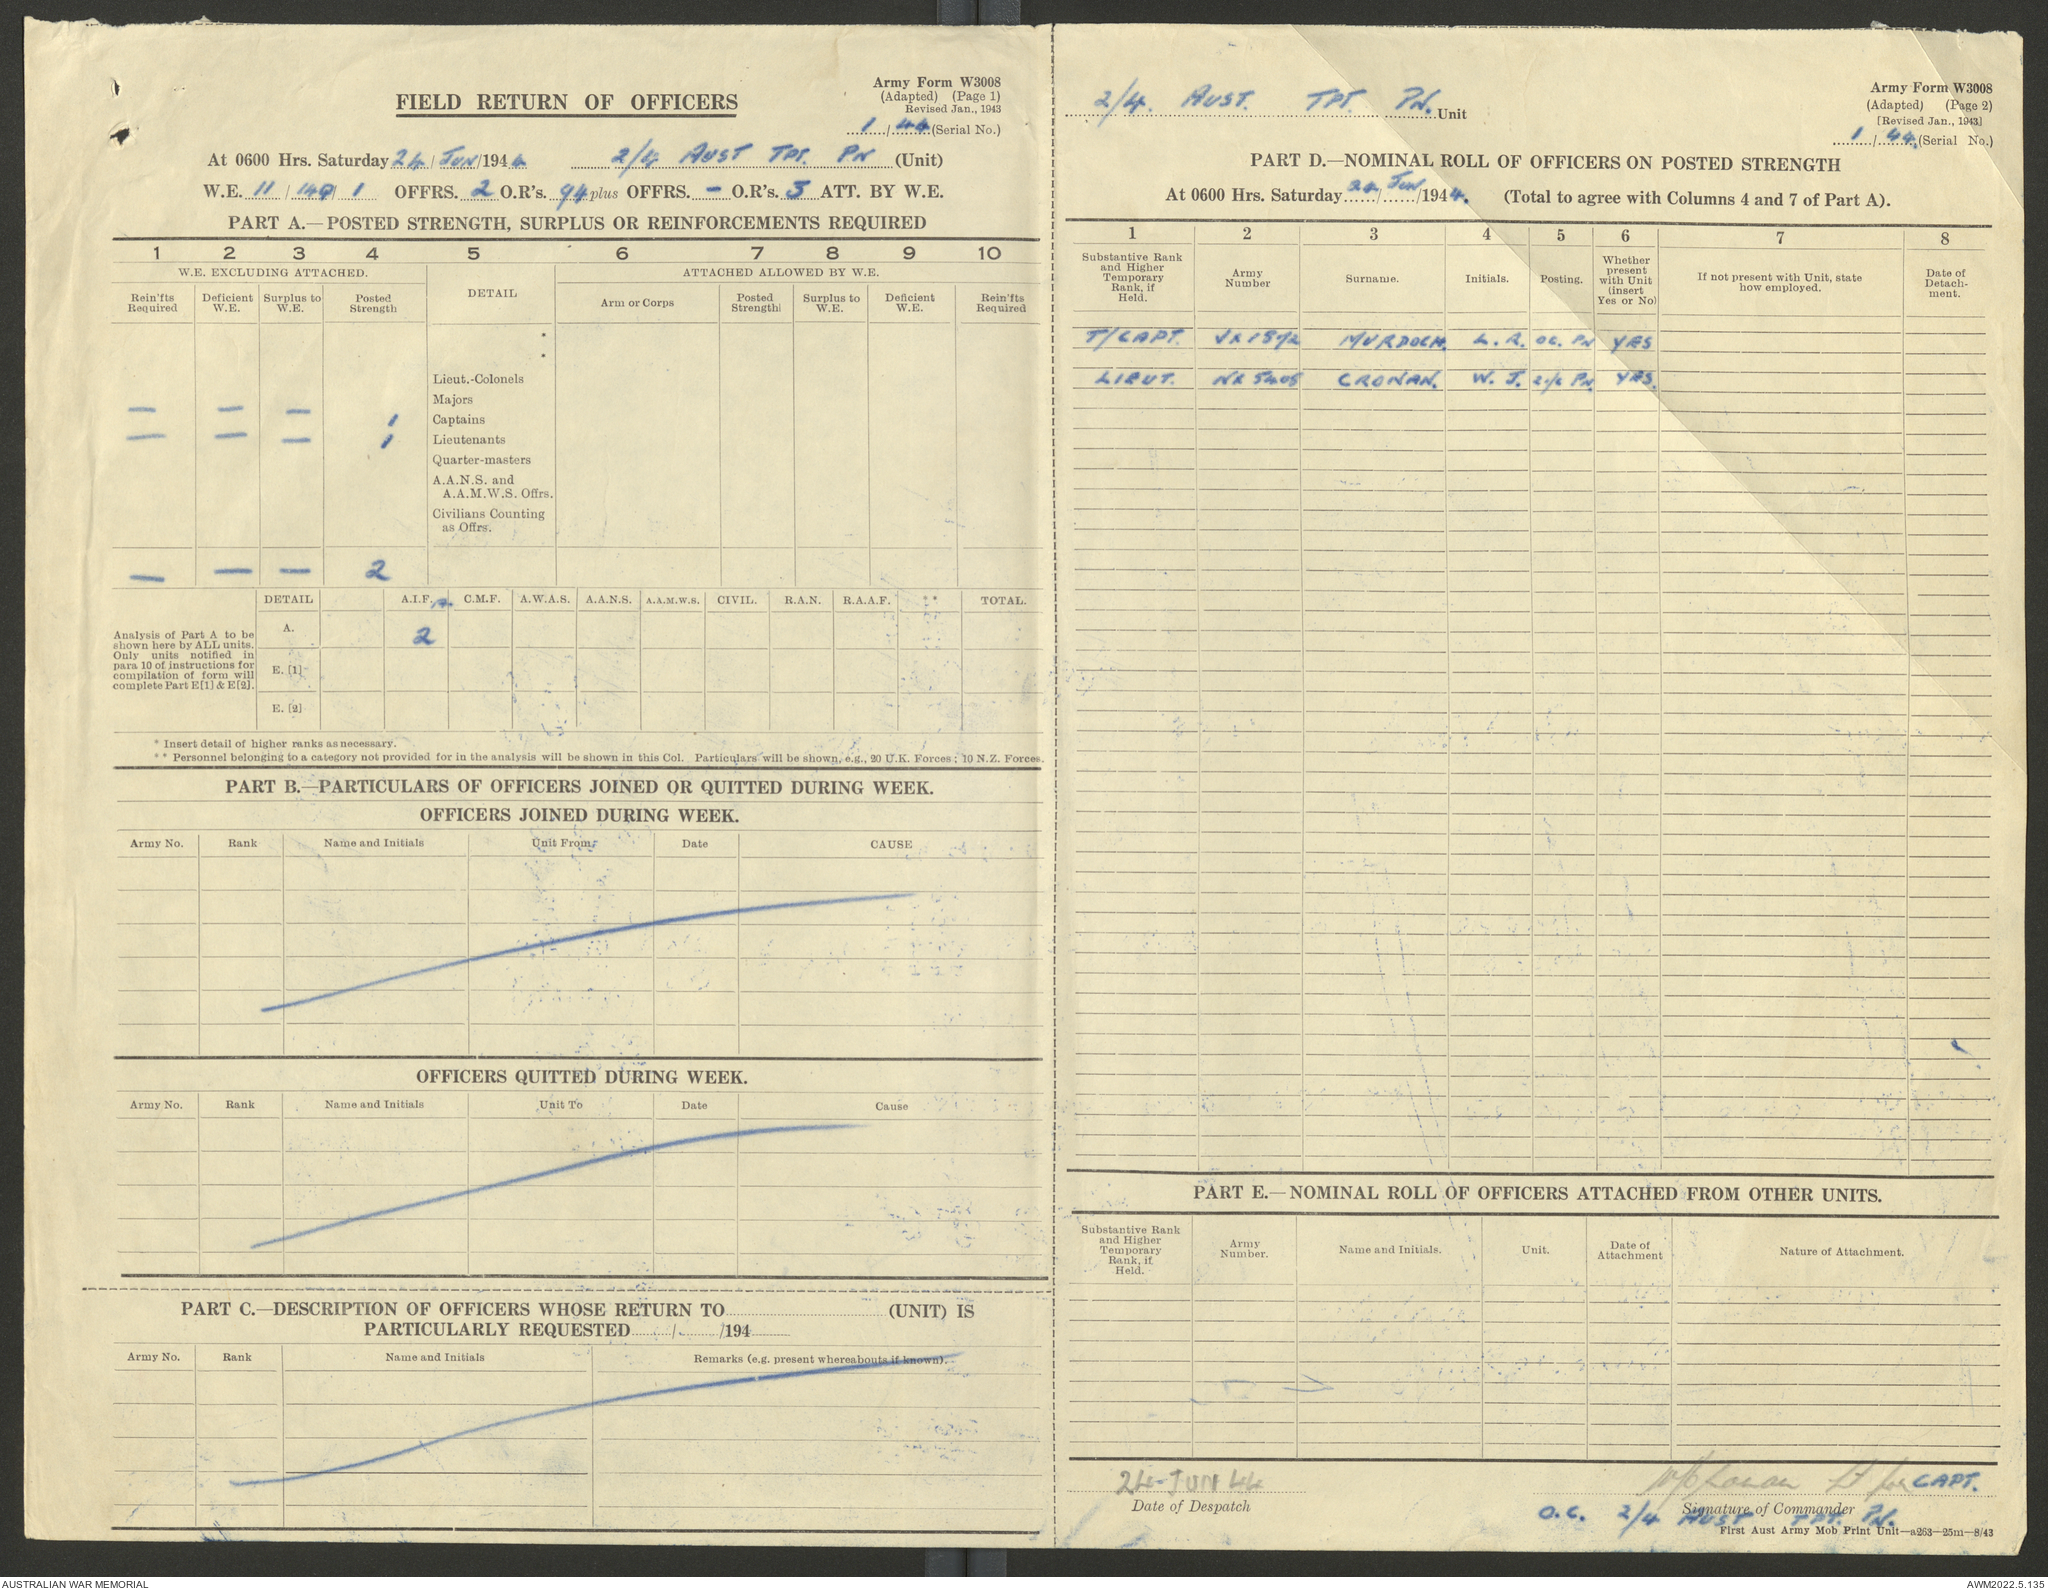 Army Form W3008
(Adapted) (Page 1)
Revised Jan., 1943
FIELD RETURN OF OFFICERS
1/44 (Serial No.)
At 0600 Hrs. Saturday 24/JUN/1944 2/4 AUST TPT. PN (Unit)
W.E. 11/149/1 OFFRS. 2 O.R's. 94 plus OFFRS. – O.R's. 5 ATT. BY W.E.
PART A.—POSTED STRENGTH, SURPLUS OR REINFORCEMENTS REQUIRED
1 2 3 4 5 6 7 8 9 10
W.E. EXCLUDING ATTACHED. DETAIL ATTACHED ALLOWED BY W.E.
Rein'fts Required Deficient W.E. Surplus to W.E. Posted Strength Arm or Corps Posted Strength Surplus to W.E. Deficient W.E. Rein'fts Required
*
*
Lieut.-Colonels
Majors
— — — 1 Captains
— — — 1 Lieutenants
Quarter-masters
A.A.N.S. and
A.A.M.W.S. Offrs.
Civilians Counting
as Offrs.
— — — 2
DETAIL A.I.F. C.M.F. A.W.A.S. A.A.N.S. A.A.M.W.S. CIVIL. R.A.N. R.A.A.F. ** TOTAL.
Analysis of Part A to be
shown here by ALL units.
Only units notified in
para 10 of instructions for
compilation of form will
complete Part E[1] & E[2].
A. 2
E. [1]
E. [2]
* Insert detail of higher ranks as necessary.
** Personnel belonging to a category not provided for in the analysis will be shown in this Col. Particulars will be shown, e.g., 20 U.K. Forces; 10 N.Z. Forces.
PART B.—PARTICULARS OF OFFICERS JOINED OR QUITTED DURING WEEK.
OFFICERS JOINED DURING WEEK.
Army No. Rank Name and Initials Unit From Date CAUSE
OFFICERS QUITTED DURING WEEK.
Army No. Rank Name and Initials Unit To Date Cause
PART C.—DESCRIPTION OF OFFICERS WHOSE RETURN TO (UNIT) IS
PARTICULARLY REQUESTED / /194
Army No. Rank Name and Initials Remarks (e.g. present whereabouts if known).
Army Form W3008
(Adapted) (Page 2)
[Revised Jan., 1943]
2/4. AUST. TPT. PN. Unit
1/44. (Serial No.)
PART D.—NOMINAL ROLL OF OFFICERS ON POSTED STRENGTH
At 0600 Hrs. Saturday 24/JUN/1944. (Total to agree with Columns 4 and 7 of Part A).
1 2 3 4 5 6 7 8
Substantive Rank and Higher Temporary Rank, if Held. Army Number Surname. Initials. Posting. Whether present with Unit (insert Yes or No) If not present with Unit, state how employed. Date of Detach-ment.
T/CAPT. VX1572 MURDOCH. L. R. OC. PN YES
LIEUT. NX5405 CRONAN. W. J. 2i/c PN YES.
PART E.—NOMINAL ROLL OF OFFICERS ATTACHED FROM OTHER UNITS.
Substantive Rank and Higher Temporary Rank, if Held. Army Number. Name and Initials. Unit. Date of Attachment Nature of Attachment.
24 JUN 44
Date of Despatch
Lt for CAPT.
Signature of Commander
O.C. 2/4 AUST TPT. PN.
First Aust Army Mob Print Unit—a263—25m—8/43
AUSTRALIAN WAR MEMORIAL
AWM2022.5.135